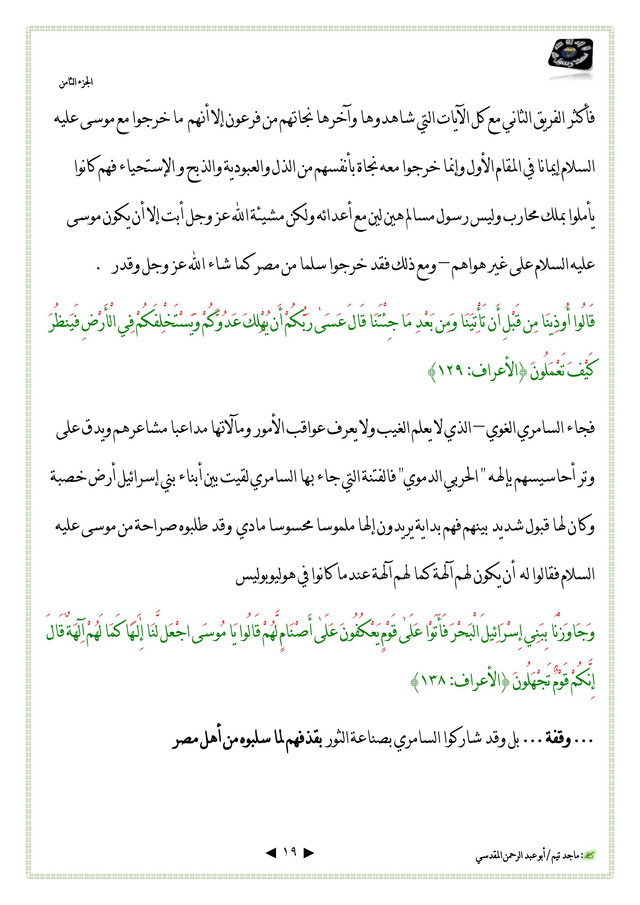 الجزء الثامن
فأكثر الفريق الثاني مع كل الآيات التي شاهدوها وآخرها نجاتهم من فرعون إلا أنهم ما خرجوا مع موسى عليه
السلام إيمانا في المقام الأول وإنما خرجوا معه نجاة بأنفسهم من الذل والعبودية والذبح و الإستحياء فهم كانوا
يأملوا بملك محارب وليس رسول مسالم هين لين مع أعدائه ولكن مشيئة الله عز وجل أبت إلا أن يكون موسى
عليه السلام على غير هواهم – ومع ذلك فقد خرجوا سلما من مصر كما شاء الله عز وجل وقدر .
قَالُوا أُوذِينَا مِن قَبْلِ أَن تَأْتِيَنَا وَمِن بَعْدِ مَا جِئْتَنَا قَالَ عَسَىٰ رَبُّكُمْ أَن يُهْلِكَ عَدُوَّكُمْ وَيَسْتَخْلِفَكُمْ فِي الْأَرْضِ فَيَنظُرَ
كَيْفَ تَعْمَلُونَ ﴿الأعراف: ١٢٩﴾
فجاء السامري الغوي – الذي لا يعلم الغيب ولا يعرف عواقب الأمور ومآلاتها مداعبا مشاعرهم ويدق على
وتر أحاسيسهم بإلهه " الحربي الدموي" فالفتنة التي جاء بها السامري لقيت بين أبناء بني إسرائيل أرض خصبة
وكان لها قبول شديد بينهم فهم بداية يريدون إلها ملموسا محسوسا مادي وقد طلبوه صراحة من موسى عليه
السلام فقالوا له أن يكون لهم آلهة كما لهم آلهة عندما كانوا في هوليوبوليس
وَجَاوَزْنَا بِبَنِي إِسْرَائِيلَ الْبَحْرَ فَأَتَوْا عَلَىٰ قَوْمٍ يَعْكُفُونَ عَلَىٰ أَصْنَامٍ لَّهُمْ قَالُوا يَا مُوسَى اجْعَل لَّنَا إِلَٰهًا كَمَا لَهُمْ آلِهَةٌ قَالَ
إِنَّكُمْ قَوْمٌ تَجْهَلُونَ ﴿الأعراف: ١٣٨﴾
... وقفة ... بل وقد شاركوا السامري بصناعة الثور بقذفهم لما سلبوه من أهل مصر
: ماجد تيم / أبو عبد الرحمن المقدسي
١٩